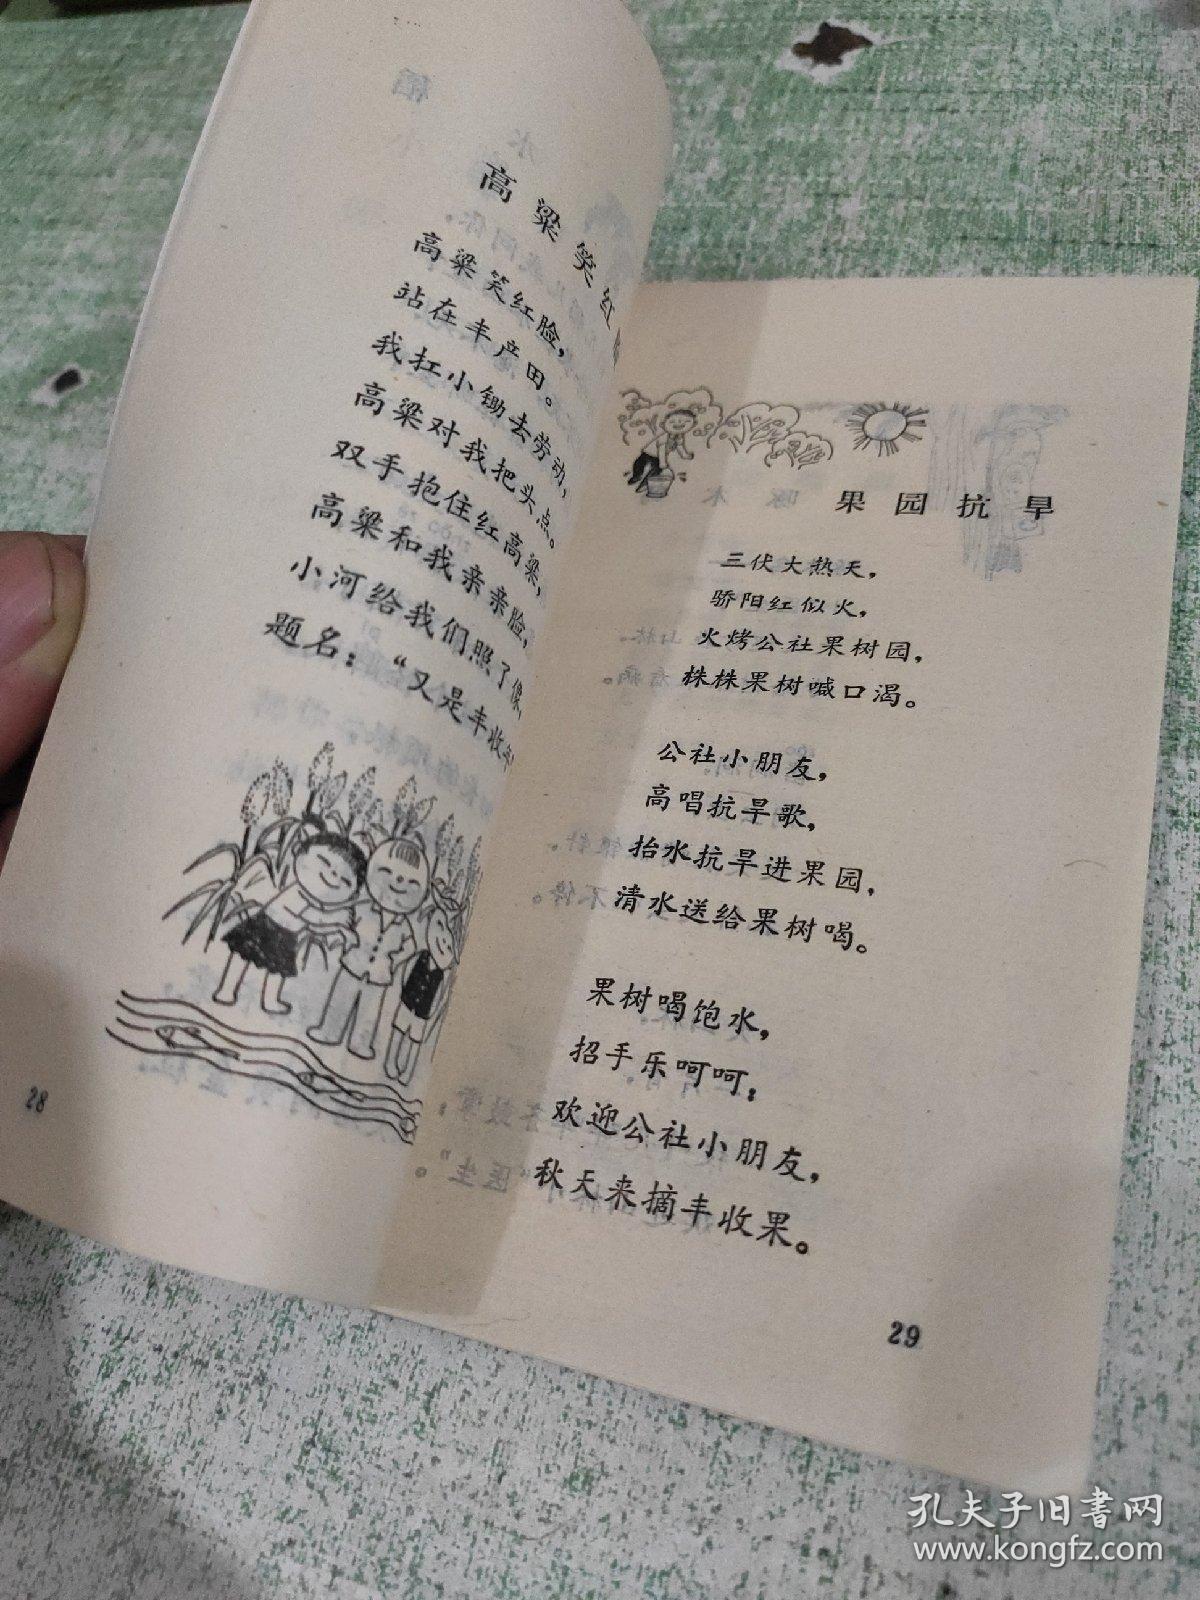 高粱笑红
高粱笑红脸，
站在丰产田。
我扛小锄去劳动，
高粱对我把头点。
双手抱住红高粱，
高粱和我亲亲脸，
小河给我们照了像，
题名：“又是丰收年
28
果园抗旱
三伏大热天，
骄阳红似火，
火烤公社果树园，
株株果树喊口渴。
公社小朋友，
高唱抗旱歌，
抬水抗旱进果园，
清水送给果树喝。
果树喝饱水，
招手乐呵呵：
欢迎公社小朋友，
秋天来摘丰收果。
29
孔夫子旧书网
www.kongfz.com